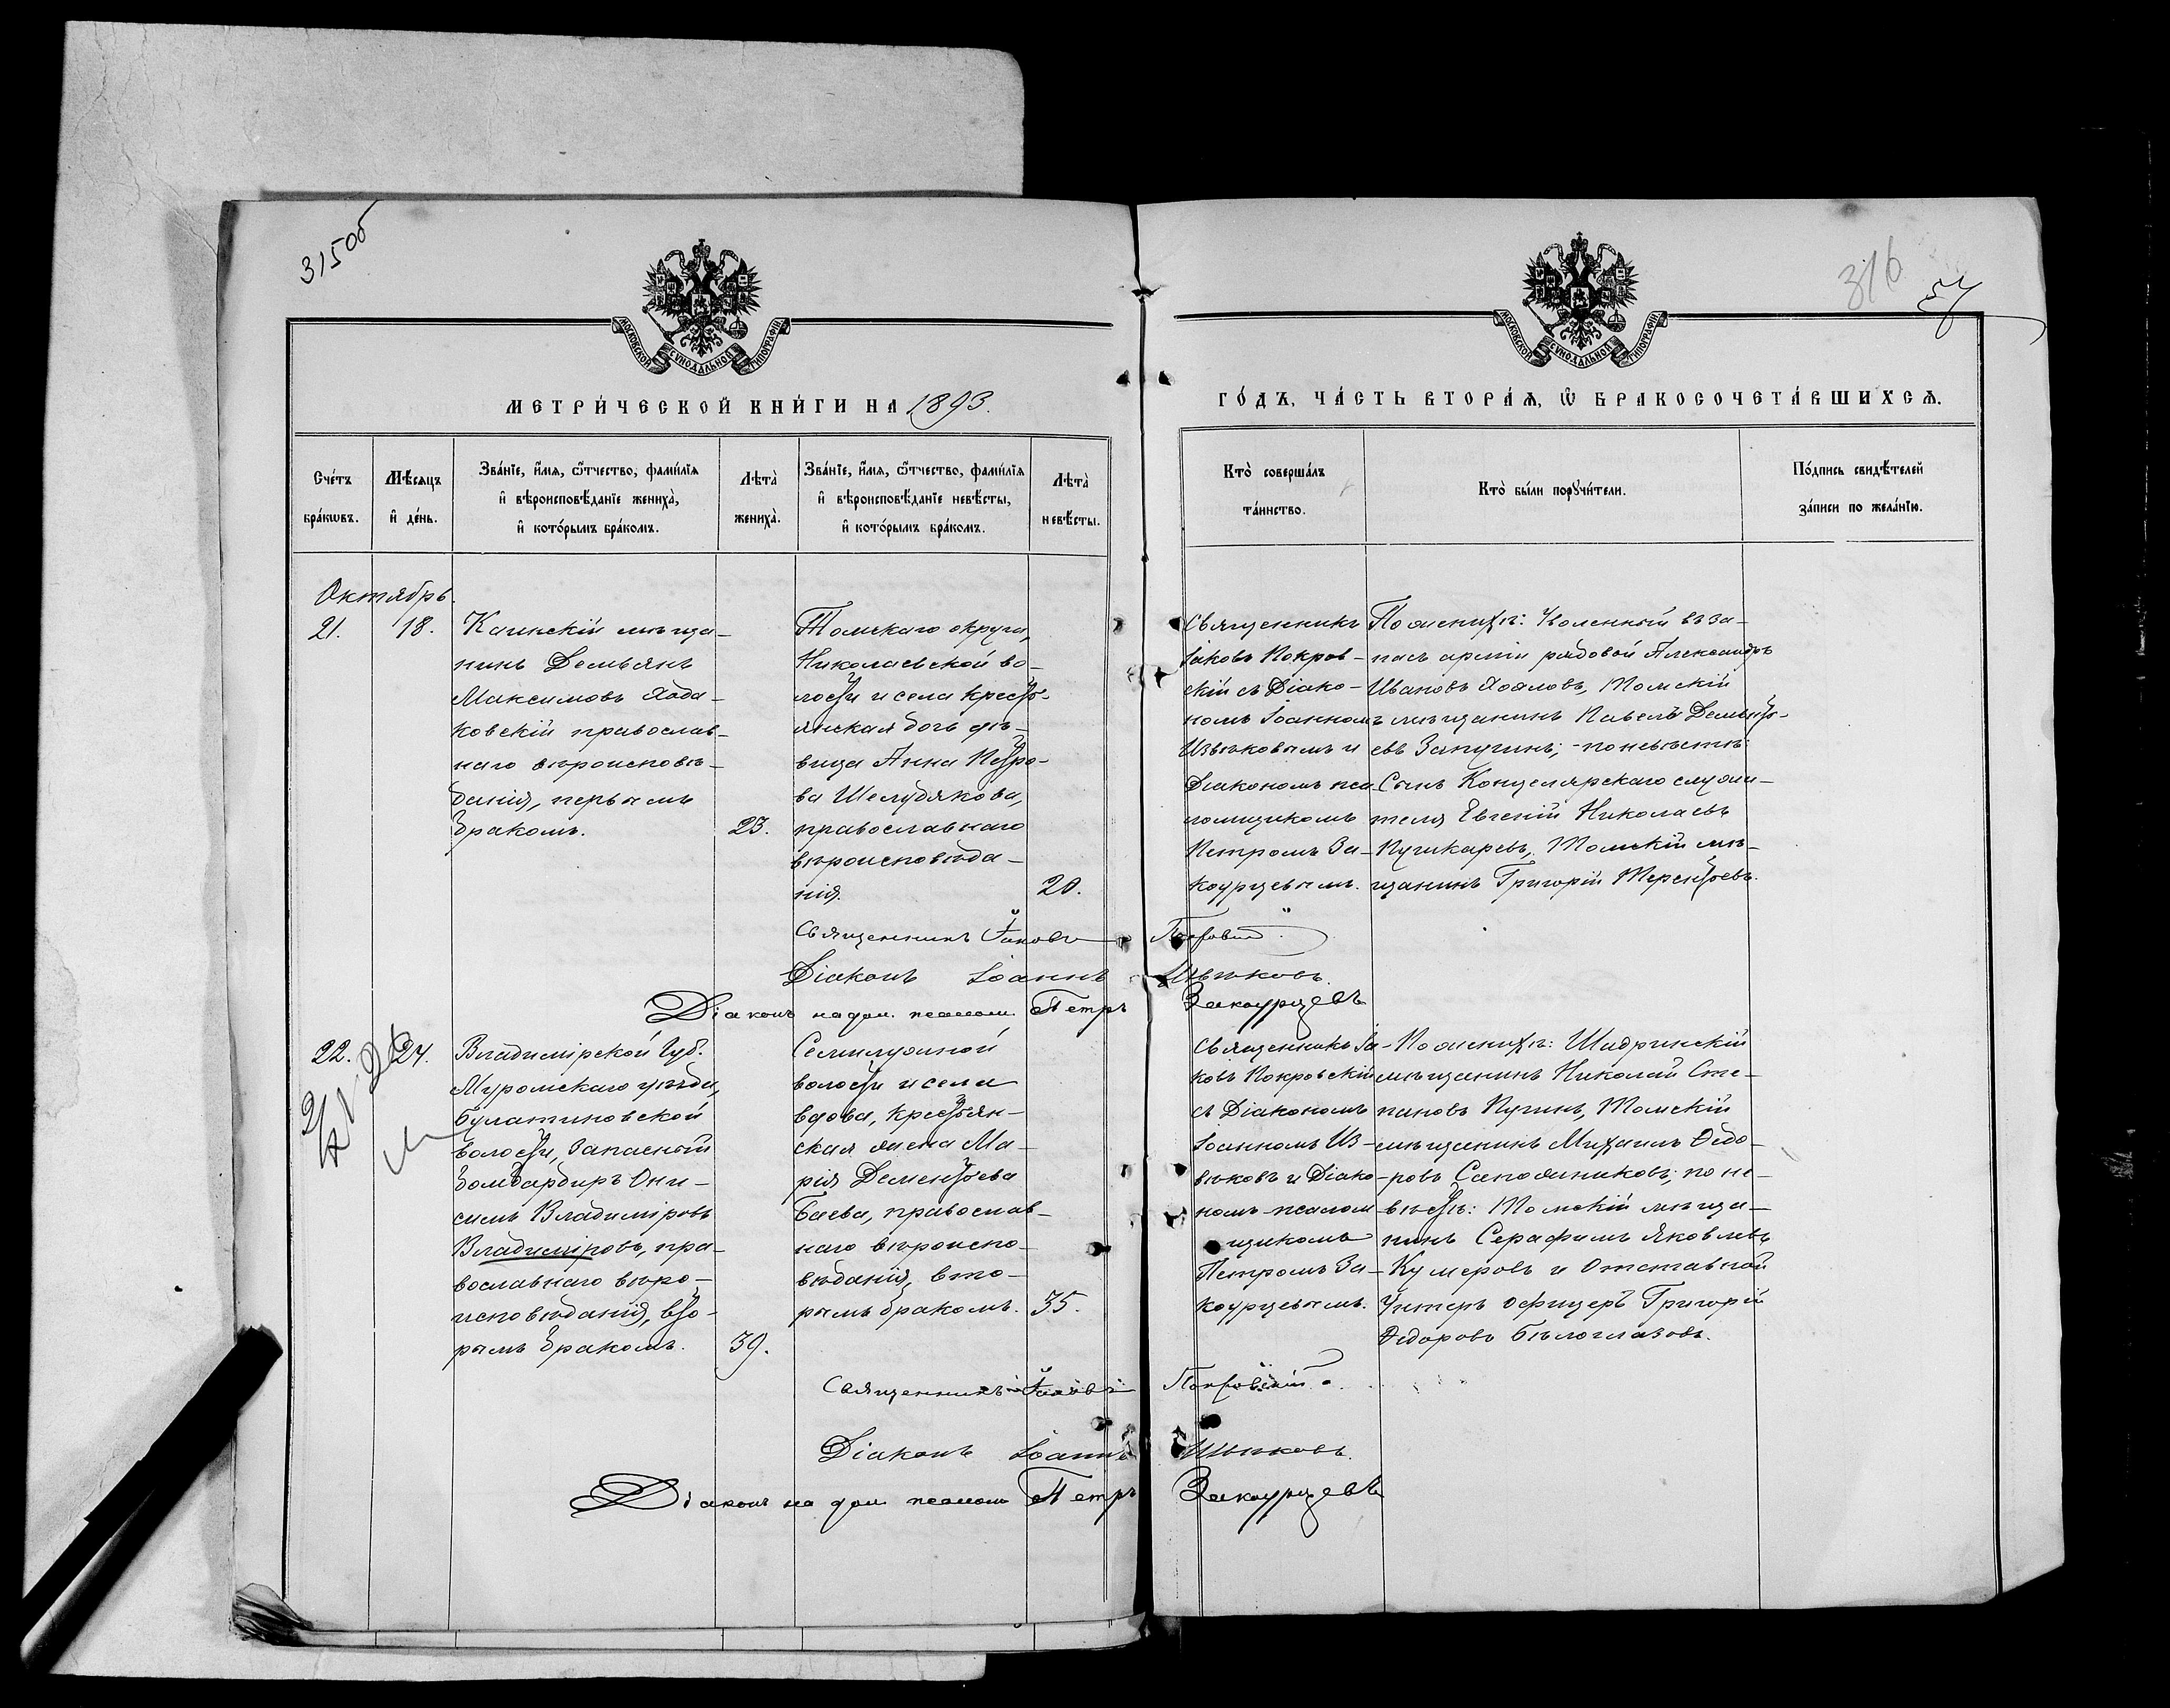 315об
316
57
МОСКОВСКОЙ СѴНОДАЛЬНОЙ ТИПОГРАФІИ
МОСКОВСКОЙ СѴНОДАЛЬНОЙ ТИПОГРАФІИ
МЕТРИ́ЧЕСКОЙ КНИ́ГИ НА 1893.
ГО́ДЪ, ЧА́СТЬ ВТОРА́Ѧ, Ѽ БРАКОСОЧЕТА́ВШИХСѦ.
Сче́тъ
бра́кѡвъ.
Мѣ́сяцъ
и҆ де́нь.
Зва́нїе, и҆́мя, ѻ҆́тчество, фами́лїя
и҆ вѣроисповѣ́данїе жениха̀,
и҆ кото́рымъ бра́комъ.
Лѣта̀
жениха̀.
Зва́нїе, и҆́мя, ѻ҆́тчество, фами́лїя
и҆ вѣроисповѣ́данїе невѣ́сты,
и҆ кото́рымъ бра́комъ.
Лѣта̀
невѣ́сты.
Кто̀ соверша́лъ
та́инство.
Кто̀ бы́ли порꙋчи́тели.
По́дпись свидѣ́телей
за́писи по жела́нїю.
Октябрь.
21.
18.
Каинскій мѣща-
нинъ Демьянъ
Максимовъ Хода-
ковскій православ-
наго вѣроисповѣ-
данія, первымъ
бракомъ.
23.
Томскаго округа,
Николаевской во-
лости и села кресть-
янская дочь дѣ-
вица Анна Петро-
ва Шелудякова,
православнаго
вѣроисповѣда-
нія.
20.
Священникъ
Іаковъ Покров-
скій съ Діако-
номъ Іоанномъ
Извѣковымъ и
Діакономъ пса-
ломщикомъ
Петромъ За-
коурцевымъ.
По женихѣ: Уволенный въ за-
пасъ арміи рядовой Александръ
Ивановъ Хохловъ, Томскій
мѣщанинъ Павелъ Дементь-
евъ Запугинъ; - по невѣстѣ:
Сынъ Канцелярскаго служи-
теля Евгеній Николаевъ
Пушкаревъ, Томскій мѣ-
щанинъ Григорій Терентьевъ.
Священникъ Іаковъ Покровскій
Діаконъ Іоаннъ Извѣковъ.
Діаконъ на дол. псалом. Петръ Закоурцевъ
22.
24.
Владимірской Губ.
Муромскаго уѣзда,
Булатниковской
волости, Запасный
бомбардиръ Они-
симъ Владиміровъ
Владиміровъ, пра-
вославнаго вѣро-
исповѣданія, вто-
рымъ бракомъ.
39.
Семилужной
волости и села
вдова, крестьян-
ская жена Ма-
рія Дементьева
Баева, православ-
наго вѣроиспо-
вѣданія, вто-
рымъ бракомъ.
35.
Священникъ Іа-
ковъ Покровскій
съ Діакономъ
Іоанномъ Из-
вѣковъ и Діако-
номъ-псалом-
щикомъ
Петромъ За-
коурцевымъ.
По женихѣ: Шадринскій
мѣщанинъ Николай Сте-
пановъ Пугинъ, Томскій
мѣщанинъ Михаилъ Ѳедо-
ровъ Сапожниковъ; по не-
вѣстѣ: Томскій мѣща-
нинъ Серафимъ Яковлевъ
Кумеровъ и Отставной
Унтеръ офицеръ Григорій
Ѳедоровъ Бѣлоглазовъ.
Священникъ Іаковъ Покровскій
Діаконъ Іоаннъ Извѣковъ.
Діаконъ на дол. псалом. Петръ Закоурцевъ